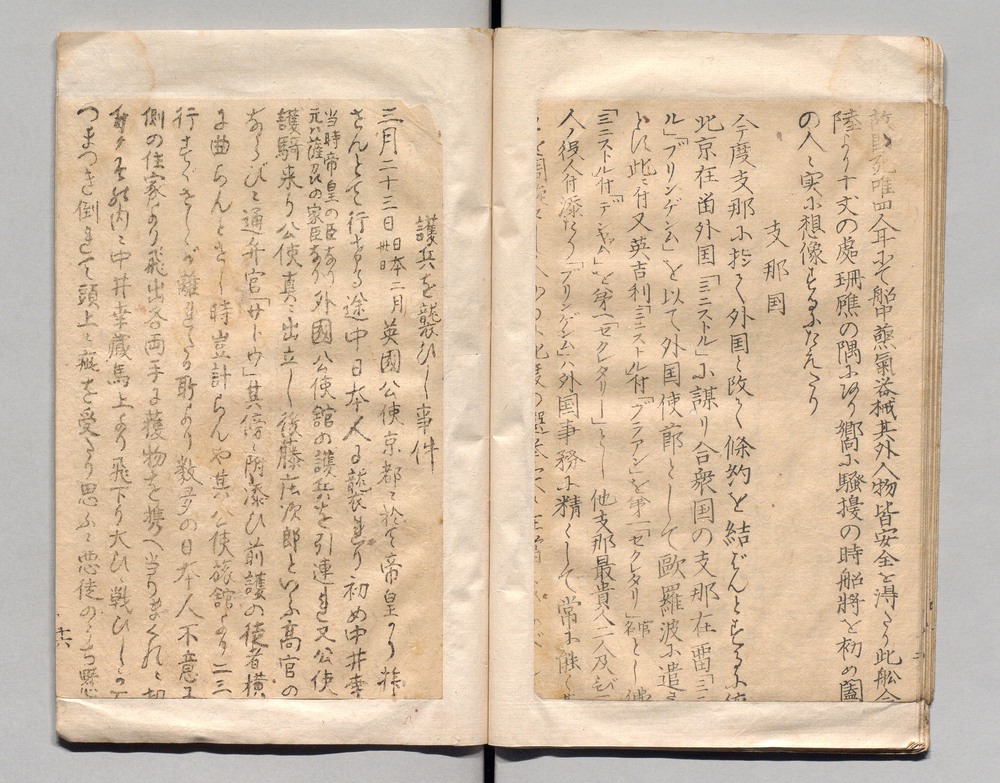 唯四人耳にて船中蒸氣器械其外人物皆安全を得たり此船今
陸より十丈の處珊瑚礁の隅にあり郷に騒擾の時船將を初め闔
の人々実に想像するにたえたり
支那国
今度支那に於て外国と改て條約を結ばんとするに依
北京在留外国「ミニストル」に謀り合衆国の支那在留「ミニ
ル」「ブリンゲンム」を以て外国使節として歐羅波に遣
とに此に付又英吉利「ミニストル付「ブラアン」を第一「セクレタリ」官名とし佛
「ミニストル付「デシャム」を第二「セクレタリー」とし他支那最貴人二人及び
人の役人付添たり「ブリンゲンム」ハ外国事務に精くして常に能く
護兵を襲ひし事件
三月二十三日日本二月卅日英國公使京都に於て帝皇に拝
さんとて行ける途中日本人に襲れたり初め中井幸
当時帝皇の臣なり元ハ薩州の家臣なり外國公使館の護兵を引連れ又公使
護騎来り公使真に出立し後藤庄次郎といふ高官の
ならびに通弁官「サトウ」其傍に附添ひ前護の従者横
に曲らんとせし時豈計らんや其公使旅館より二三
行すぐさしが離れたる所より数多の日本人不意に
側の住家より飛出各両手に獲物を携へ当りまくれに
其内に中井幸藏馬上より飛下り大ひに戦ひしが
つまづき倒れて頭上に疵を受たり思ふに悪徒のうち懸
十六